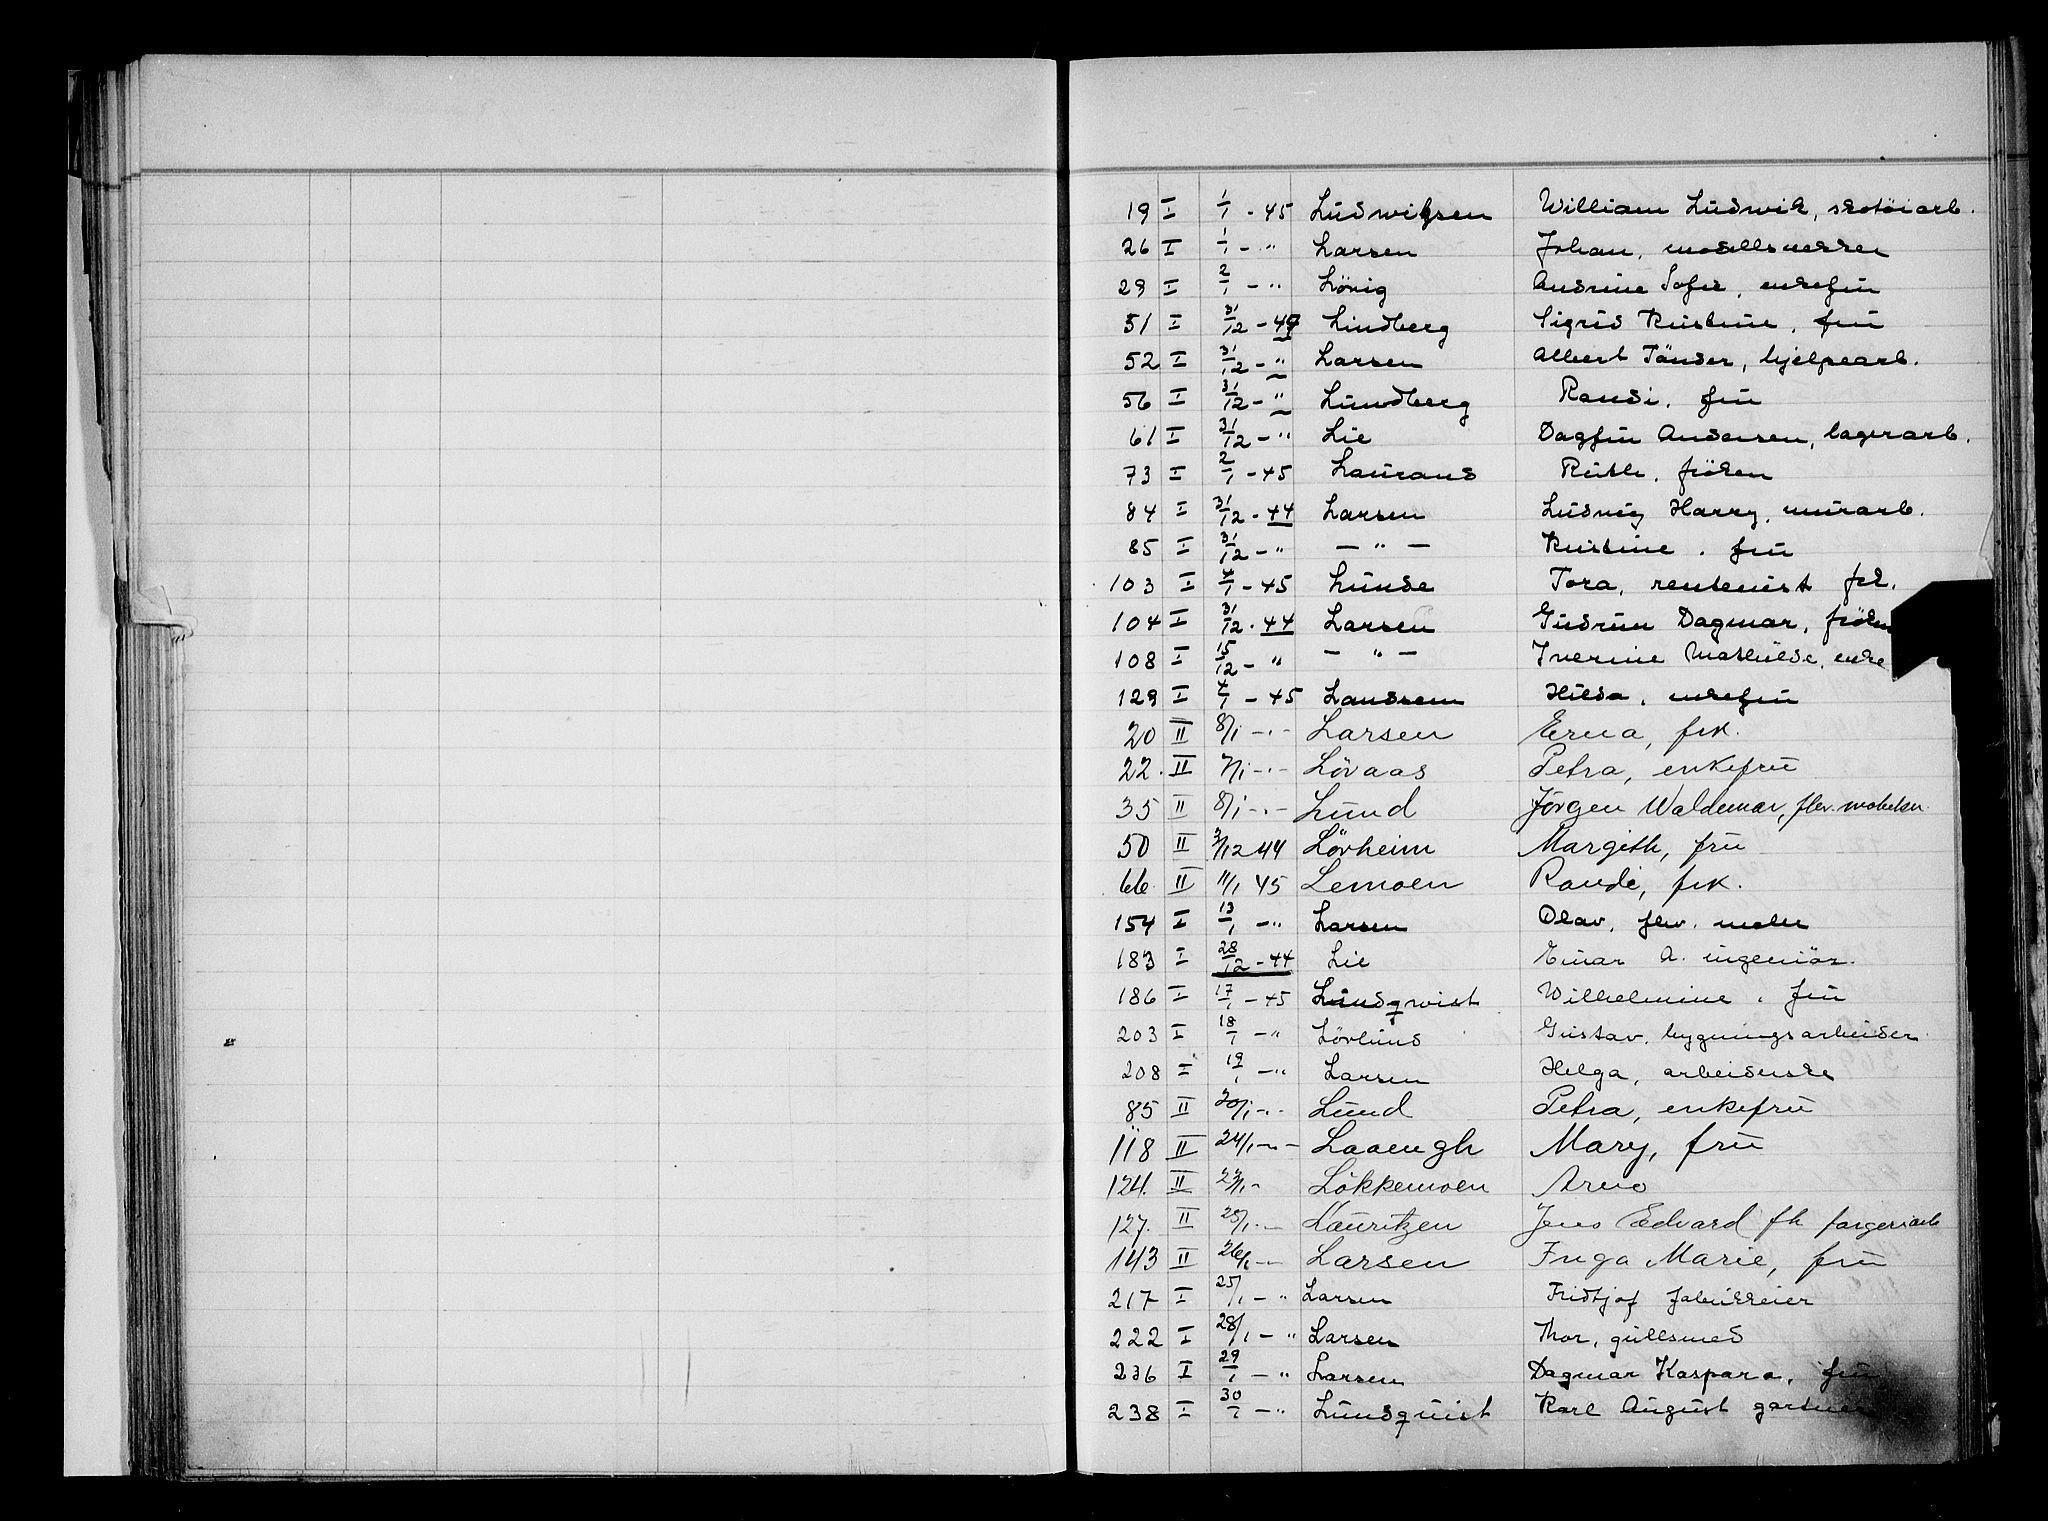 19 I 1/1 - 45 Ludwigsen William Ludwik, skotöiarb.
26 I 1/1 - " Larsen Johan, modellsnekker
29 I 2/1 - " Lönig Andrine Sofie, enkefru
51 I 31/12 - 44 Lindberg Sigrid Kristine, fru
52 I 31/12 - " Larsen Albert Tänder, hjelpearb.
56 I 31/12 - " Lundberg Randi, fru
61 I 31/12 - " Lie Dagfin Andersen, lagerarb.
73 I 2/1 - 45 Laurans Ruth, fröken
84 I 31/12 - 44 Larsen Ludvig Harry, murarb.
85 I 31/12 - " — " — Kristine, fru
103 I 4/1 - 45 Lunde Tora, rentenist frk.
104 I 31/12 - 44 Larsen Gudrun Dagmar, fröken
108 I 15/12 - " — " — Iverine Mathilde, enke
129 I 4/1 - 45 Landsem Hilda, enkefru
20 II 8/1 - " - Larsen Erna, frk.
22. II 7/1 - " - Lövaas Petra, enkefru
35 II 8/1 - " - Lund Jörgen Waldemar, flhv.
50 II /12 44 Lövheim Margith, fru
66 II 11/1 45 Lemoen Randi, frk.
154 I 13/1 - " Larsen Olav, fhv. maler
183 I 28/12 - 44 Lie Einar A. ingeniör.
186 I 17/1 - 45 Lundqwist Wilhelmine, fru
203 I 18/1 - " Lövlund Gustav, bygningsarbeider
208 I 19/1 - " Larsen Helga, arbeiderske
85 II 20/1 - " - Lund Petra, enkefru
118 II 24/1 - " - Laaengh Mary, fru
124. II 23/1 - Lökkemoen Arno
127. II 25/1 - " - Lauritzen Jens Edvard fh fargeriarb
143 II 26/1 - " - Larsen Inga Marie, fru
217 I 25/1 - " Larsen Fridtjof fabrikkeier
222 I 28/1 - " Larsen Thor, gullsmed
236 I 29/1 - " Larsen Dagmar Kaspara, fru
238 I 30/1 - " Lundquist Karl August gartner